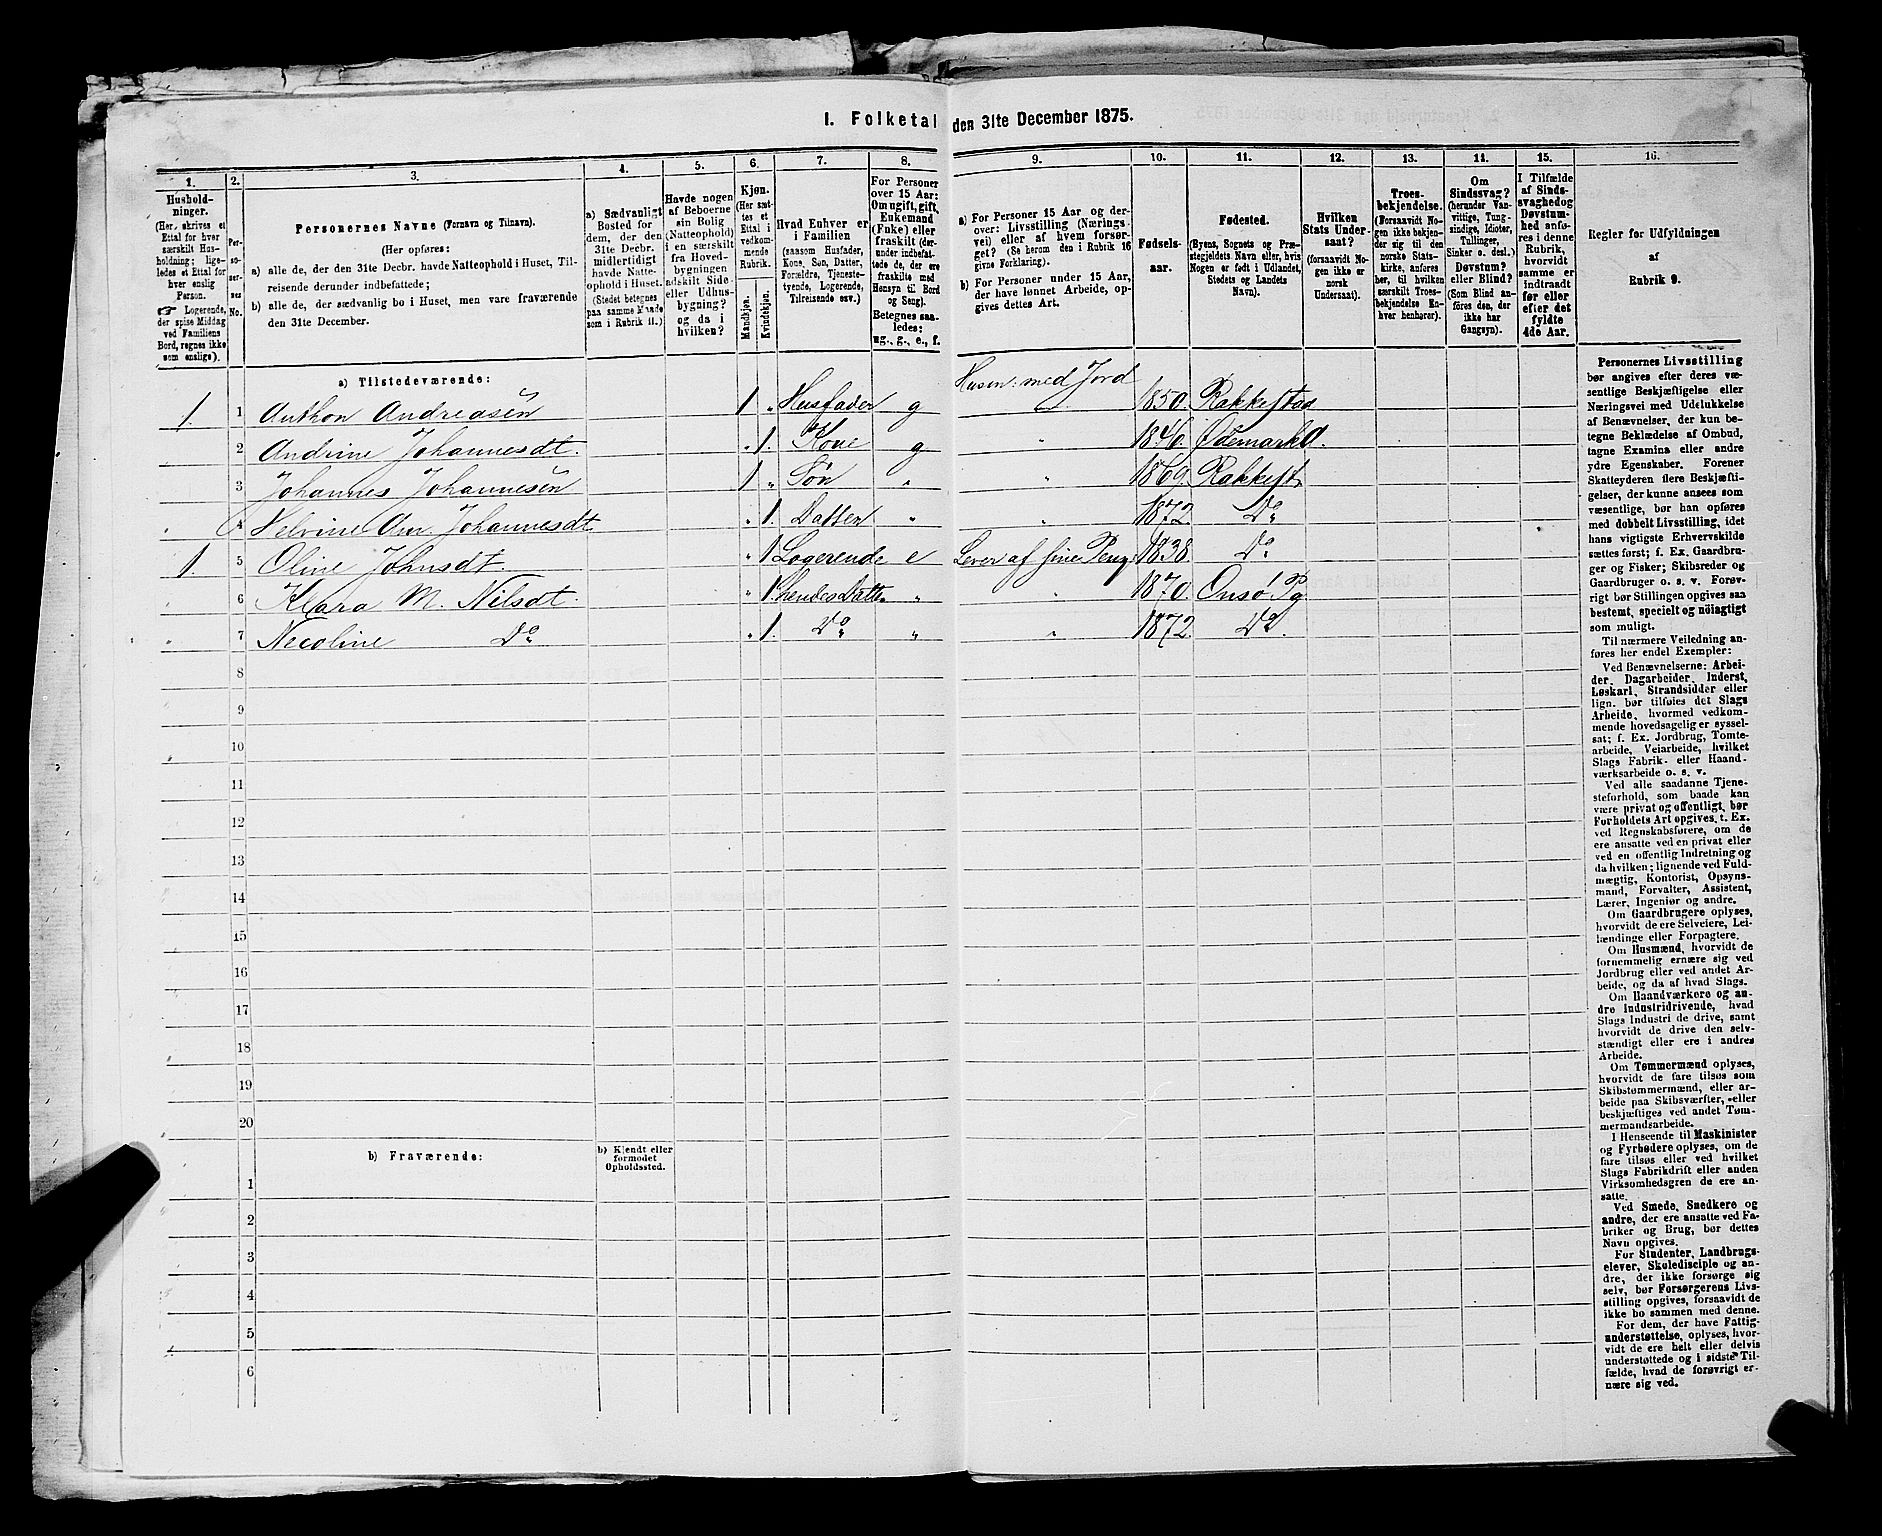 I. Folketal den 31te December 1875.
1. 2. 3. 4. 5. 6. 7. 8. 9. 10. 11. 12. 13. 14. 15. 16.
Husholdninger.
(Her skrives et
Ettal for hver
særskilt Hus-
holdning; lige-
ledes et Ettal for
hver enslig
Person.
☞ Logerende,
der spise Middag
ved Familiens
Bord, regnes ikke
som enslige).
Per-
so-
ner-
nes
No.
Personernes Navne (Fornavn og Tilnavn).
(Her opføres:
a) alle de, der den 31te Decbr. havde Natteophold i Huset, Til-
reisende derunder indbefattede;
b) alle de, der sædvanlig bo i Huset, men vare fraværende
den 31te December.
a) Sædvanligt
Bosted for
dem, der den
31te Decbr.
midlertidigt
havde Natte-
ophold i Huset.
(Stedet betegnes
paa samme Maade
som i Rubrik 11.)
Havde nogen
af Beboerne
sin Bolig
(Natteophold)
i en særskilt
fra Hoved-
bygningen
adskilt Side-
eller Udhus-
bygning?
og da i
hvilken?
Kjøn.
(Her sæt-
tes et
Ettal i
vedkom-
mende
Rubrik.
Mandkjøn.
Kvindekjøn.
Hvad Enhver er
i Familien
(saasom Husfader,
Kone, Søn, Datter,
Forældre, Tjeneste-
tyende, Logerende,
Tilreisende osv.)
For Personer
over 15 Aar:
Om ugift, gift,
Enkemand
(Enke) eller
fraskilt (der-
under indbefat-
tede de, der ere
fraskilte med
Hensyn til Bord
og Seng).
Betegnes saa-
ledes:
ug., g., e., f.
a) For Personer 15 Aar og der-
over: Livsstilling (Nærings-
vei) eller af hvem forsør-
get? (Se herom den i Rubrik 16
givne Forklaring).
b) For Personer under 15 Aar,
der have lønnet Arbeide, op-
gives dettes Art.
Fødsels-
aar.
Fødested.
(Byens, Sognets og Præ-
stegjeldets Navn eller, hvis
Nogen er født i Udlandet,
Stedets og Landets
Navn).
Hvilken
Stats Under-
saat?
(forsaavidt No-
gen ikke er
norsk
Undersaat).
Troes-
bekjendelse.
(Forsaavidt No-
gen ikke bekjen-
der sig til den
norske Stats-
kirke, anføres
her, til hvilken
særskilt Troes-
bekjendelse En-
hver henhører).
Om
Sindssvag?
(herunder Van-
vittige, Tung-
sindige, Idioter,
Tullinger,
Sinker o. desl.)
Døvstum?
eller Blind?
(Som Blind an-
føres den, der
ikke har
Gangsyn).
I Tilfælde
af Sinds-
svaghed og
Døvstum-
hed anfø-
res i denne
Rubrik,
hvorvidt
samme er
indtraadt
før eller
efter det
fyldte
4de Aar.
Regler for Udfyldningen
af
Rubrik 9.
a) Tilstedeværende:
Husm: med Jord
1. 1 Anthon Andreasen 1 „ Husfader g „ 1850. Rakkestad
2 Andrine Johannesdt. „ 1. Kone g „ 1846. Ødemark
3 Johannes Johannesen 1 „ Søn „ „ 1869. Rakkest.
„ 4 Helvine Am. Johannesdt. „ 1. Datter „ „ 1872. Do
1. 5 Oline Johnsdt. „ 1 Logerende e Lever af sine Peng. 1838. Do
„ 6 Klara M. Nilsdt. „ 1. hendes Datter „ „ 1870. Onsø Pg
„ 7 Necoline Do „ 1. Do „ „ 1872. Do.
8
9
10
11
12
13
14
15
16
17
18
19
20
b) Fraværende:
b) Kjendt eller
formodet
Opholdssted.
1
2
3
4
5
6
Personernes Livsstilling
bør angives efter deres væ-
sentlige Beskjæftigelse eller
Næringsvei med Udelukkelse
af Benævnelser, der kun be-
tegne Beklædelse af Ombud,
tagne Examina eller andre
ydre Egenskaber. Forener
Skatteyderen flere Beskjæfti-
gelser, der kunne ansees som
væsentlige, bør han opføres
med dobbelt Livsstilling, idet
hans vigtigste Erhvervskilde
sættes først; f. Ex. Gaardbru-
ger og Fisker; Skibsreder og
Gaardbruger o. s. v. Forøv-
rigt bør Stillingen opgives saa
bestemt, specielt og nöiagtigt
som muligt.
Til nærmere Veiledning an-
føres her endel Exempler:
Ved Benævnelserne: Arbei-
der, Dagarbeider, Inderst,
Løskarl, Strandsidder eller
lign. bør tilføies det Slags
Arbeide, hvormed vedkom-
mende hovedsagelig er syssel-
sat; f. Ex. Jordbrug, Tomte-
arbeide, Veiarbeide, hvilket
Slags Fabrik- eller Haand-
værksarbeide o. s. v.
Ved alle saadanne Tjene-
steforhold, som baade kan
være privat og offentligt, bør
Forholdets Art opgives, t. Ex.
ved Regnskabsførere, om de
ere ansatte ved en privat eller
ved en offentlig Indretning og
da hvilken; lignende ved Fuld-
mægtig, Kontorist, Opsyns-
mand, Forvalter, Assistent,
Lærer, Ingeniør og andre.
Om Gaardbrugere oplyses,
hvorvidt de ere Selveiere, Lei-
lændinge eller Forpagtere.
Om Husmænd, hvorvidt de
fornemmelig ernære sig ved
Jordbrug eller ved andet Ar-
beide, og da af hvad Slags.
Om Haandværkere og an-
dre Industridrivende, hvad
Slags Industri de drive, samt
hvorvidt de drive den selv-
stændigt eller ere i andres
Arbeide.
Om Tømmermænd oplyses,
hvorvidt de fare tilsøs som
Skibstømmermænd, eller ar-
beide paa Skibsværfter, eller
beskjæftiges ved andet Tøm-
mermandsarbeide.
I Henseende til Maskinister
og Fyrbødere oplyses, om de
fare tilsøs eller ved hvilket
Slags Fabrikdrift eller anden
Virksomhedsgren de ere an-
satte.
Ved Smede, Snedkere og
andre, der ere ansatte ved Fa-
briker og Brug, bør dettes
Navn opgives.
For Studenter, Landbrugs-
elever, Skoledisciple og an-
dre, der ikke forsørge sig
selv, bør Forsørgerens Livs-
stilling opgives, forsaavidt de
ikke bo sammen med denne.
For dem, der have Fattig-
understøttelse, oplyses, hvor-
vidt de ere helt eller delvis
understøttede og i sidste Til-
fælde, hvad de forøvrigt er-
nære sig ved.